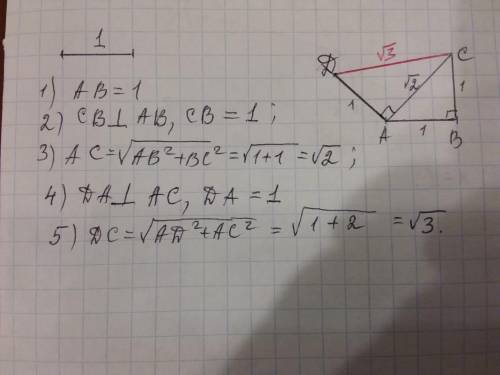 1
1) AB = 1
2) CB ⊥ AB, CB = 1 ;
3) AC = √AB²+BC² = √1+1 = √2 ;
4) DA ⊥ AC, DA = 1
5) DC = √AD²+AC² = √1+2 = √3.
D
√3
C
√2
1
1
A
1
B